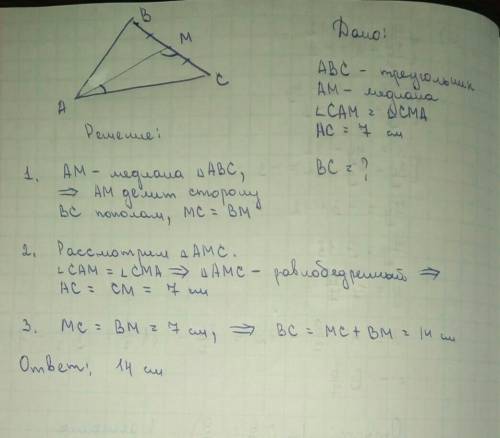 B
M
C
A
Дано:
ABC - треугольник
AM - медиана
∠CAM = △CMA
AC = 7 см
BC = ?
Решение:
1. AM - медиана △ABC,
⇒ AM делит сторону
BC пополам, MC = BM
2. Рассмотрим △AMC.
∠CAM = ∠CMA ⇒ △AMC - равнобедренный ⇒
AC = CM = 7 см
3. MC = BM = 7 см, ⇒ BC = MC + BM = 14 см
Ответ: 14 см